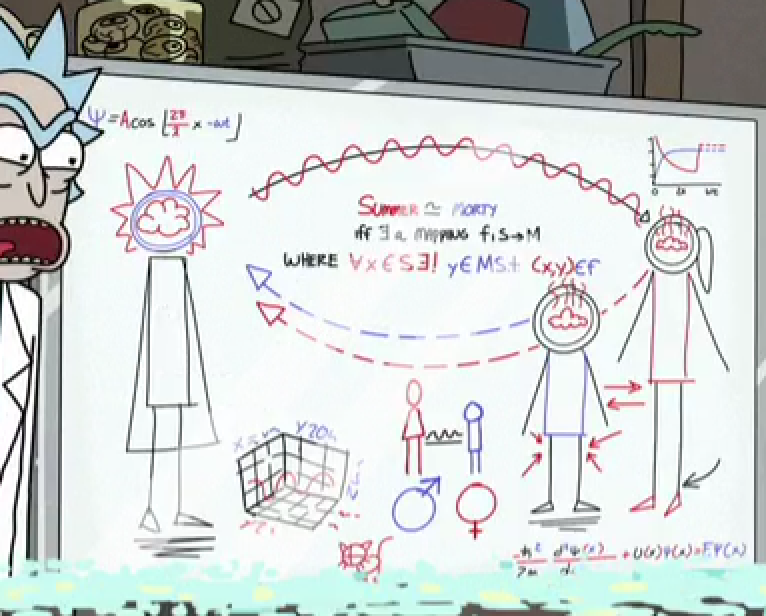 Ψ=Acos[2π/λ x -ωt]
SUMMER ≃ MORTY
iff ∃ a MAPPING f:S→M
WHERE ∀x∈S∃! y∈M S.t (x,y)∈f
♂ ♀
-ħ²/2m d²Ψ(x)/dx +U(x)Ψ(x)=EΨ(x)